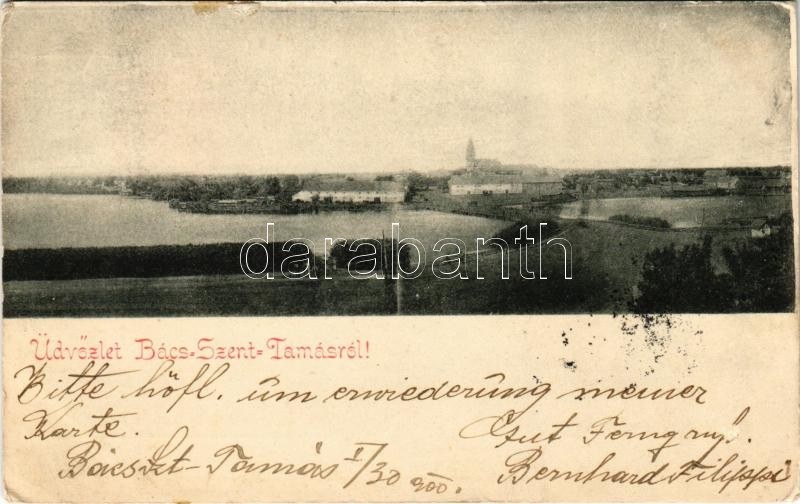 darabanth
Üdvözlet Bács-Szent-Tamásról!
Bitte höfl. üm erwiederüng meiner
Karte.
Gut
Bácsszt-Tamás I/30 900.
Bernhard Filippi